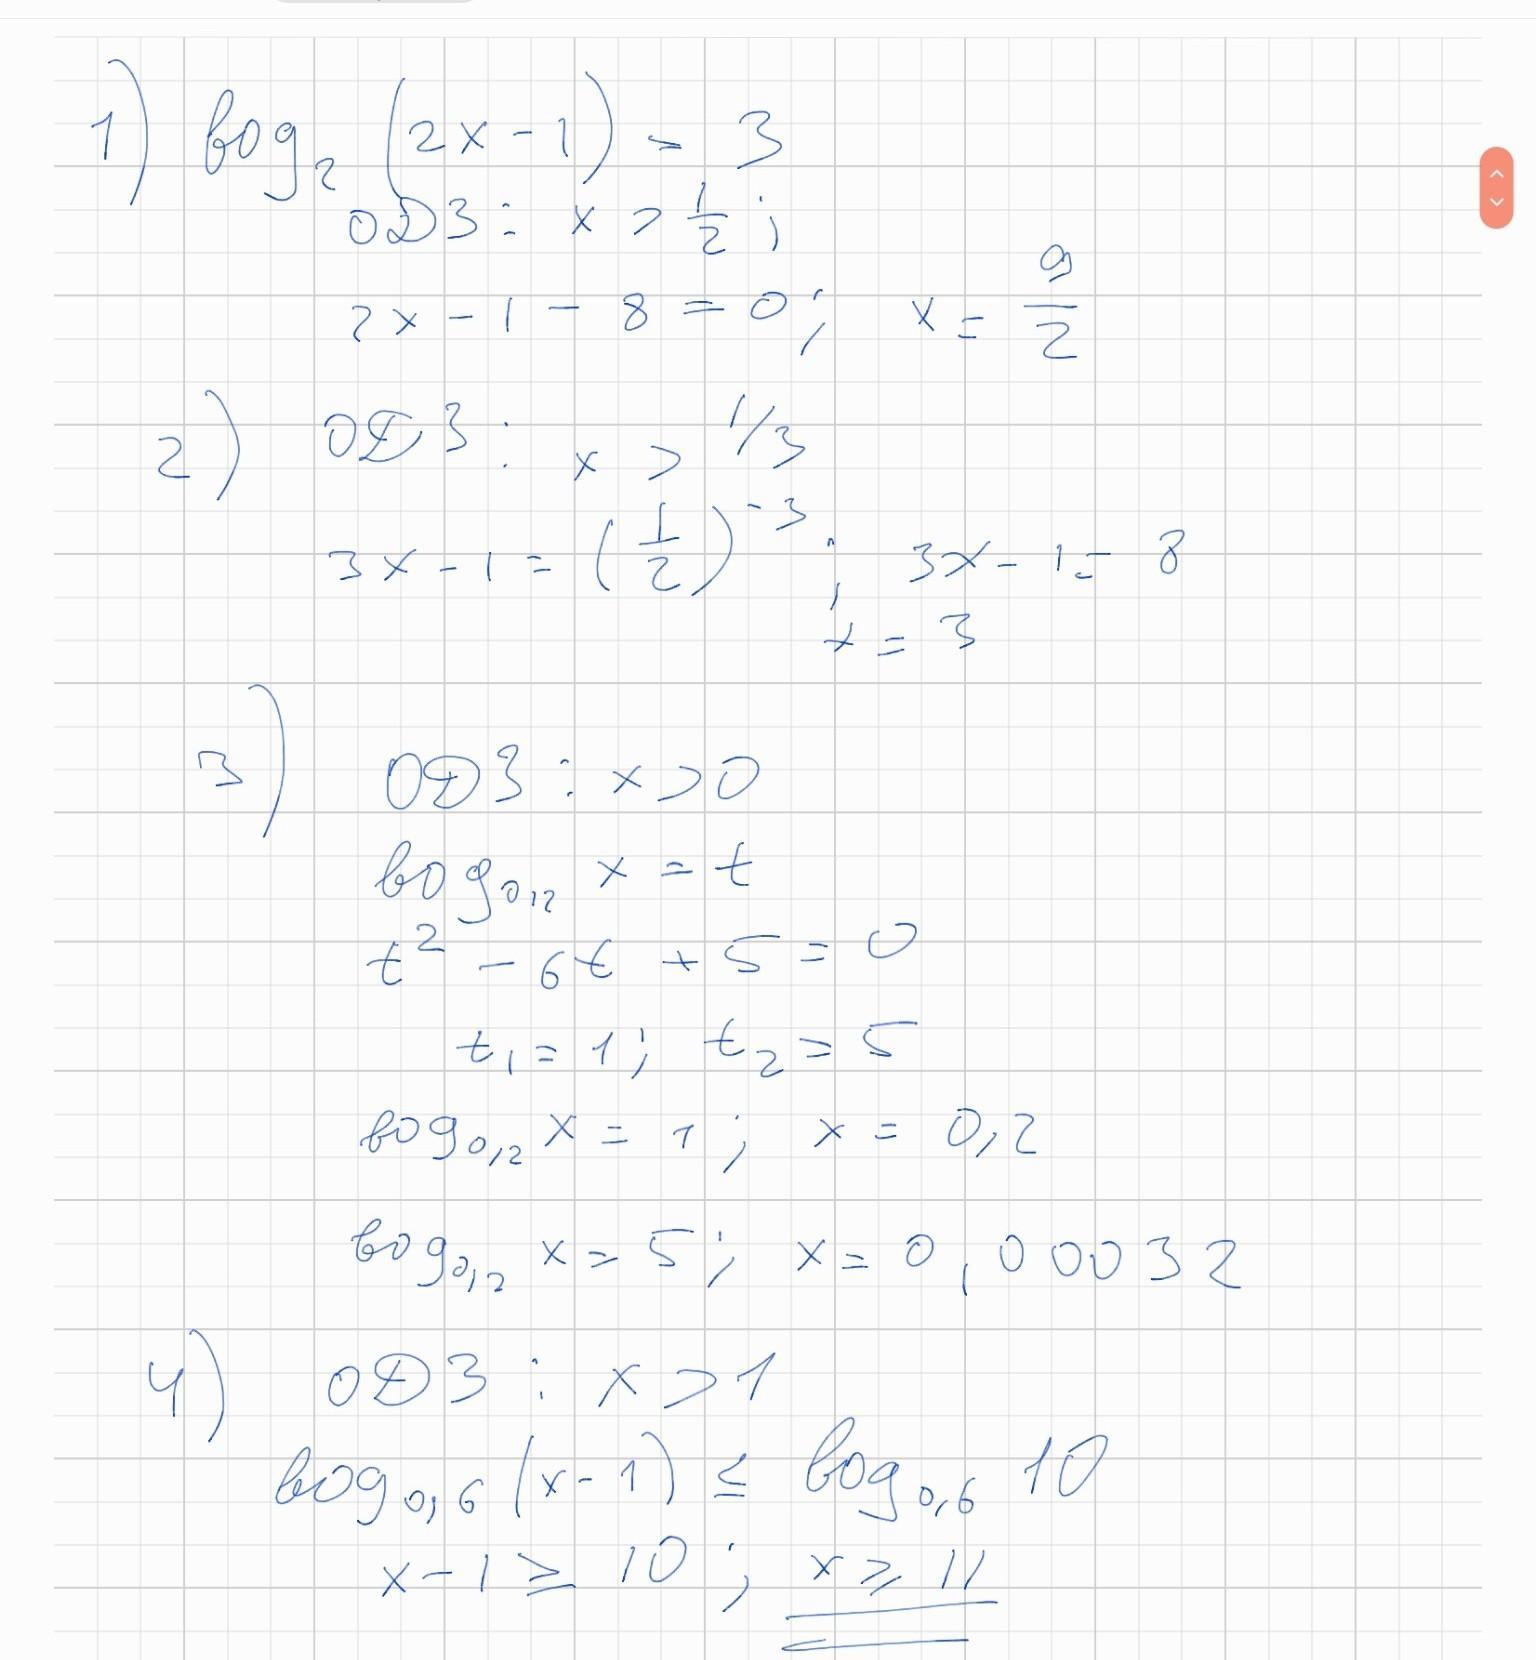 1) log₂ (2x - 1) = 3
ОДЗ: x > 1/2;
2x - 1 - 8 = 0; x = 9/2
2) ОДЗ: x > 1/3
3x - 1 = (1/2)⁻³; 3x - 1 = 8
x = 3
3) ОДЗ: x > 0
log₀,₂ x = t
t² - 6t + 5 = 0
t₁ = 1; t₂ = 5
log₀,₂ x = 1; x = 0,2
log₀,₂ x = 5; x = 0,00032
4) ОДЗ: x > 1
log₀,₆ (x - 1) ≤ log₀,₆ 10
x - 1 ≥ 10; x ≥ 11